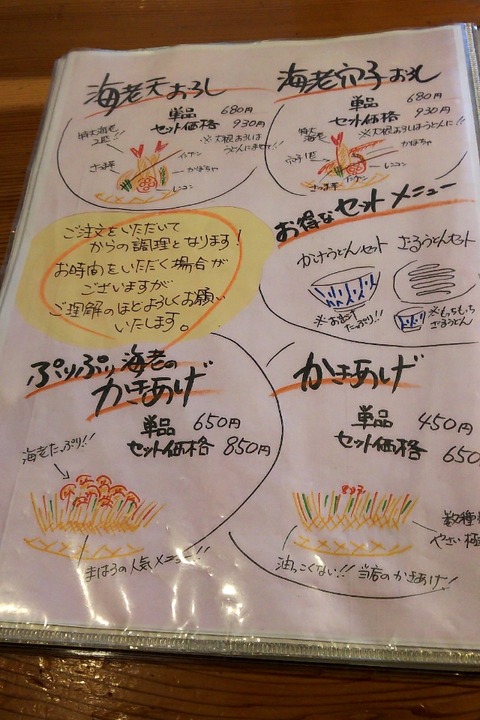 海老天おろし
単品 680円
セット価格 930円
特大海老
2匹!!
※大根おろしは
うどんにまぜて!!
インゲン
さつま芋
かぼちゃ
レンコン
海老穴子おろし
単品 680円
セット価格 930円
特大
海老
※大根おろしうどんに!!
穴子1匹
かぼちゃ
レンコン
インゲン
さつま芋
ご注文をいただいて
からの調理となります!
お時間をいただく場合が
ございますが
ご理解のほどよろしくお願い
いたします。
お得なセットメニュー
かけうどんセット
ざるうどんセット
たっぷり!!
※もちもち
ざるうどん
ぷりぷり海老の
かきあげ
単品 650円
セット価格 850円
海老たっぷり!!
まほろの人気メニュー!!
かきあげ
単品 450円
セット価格 650
数種
やさい
油っこくない!! 当店のかきあげ!